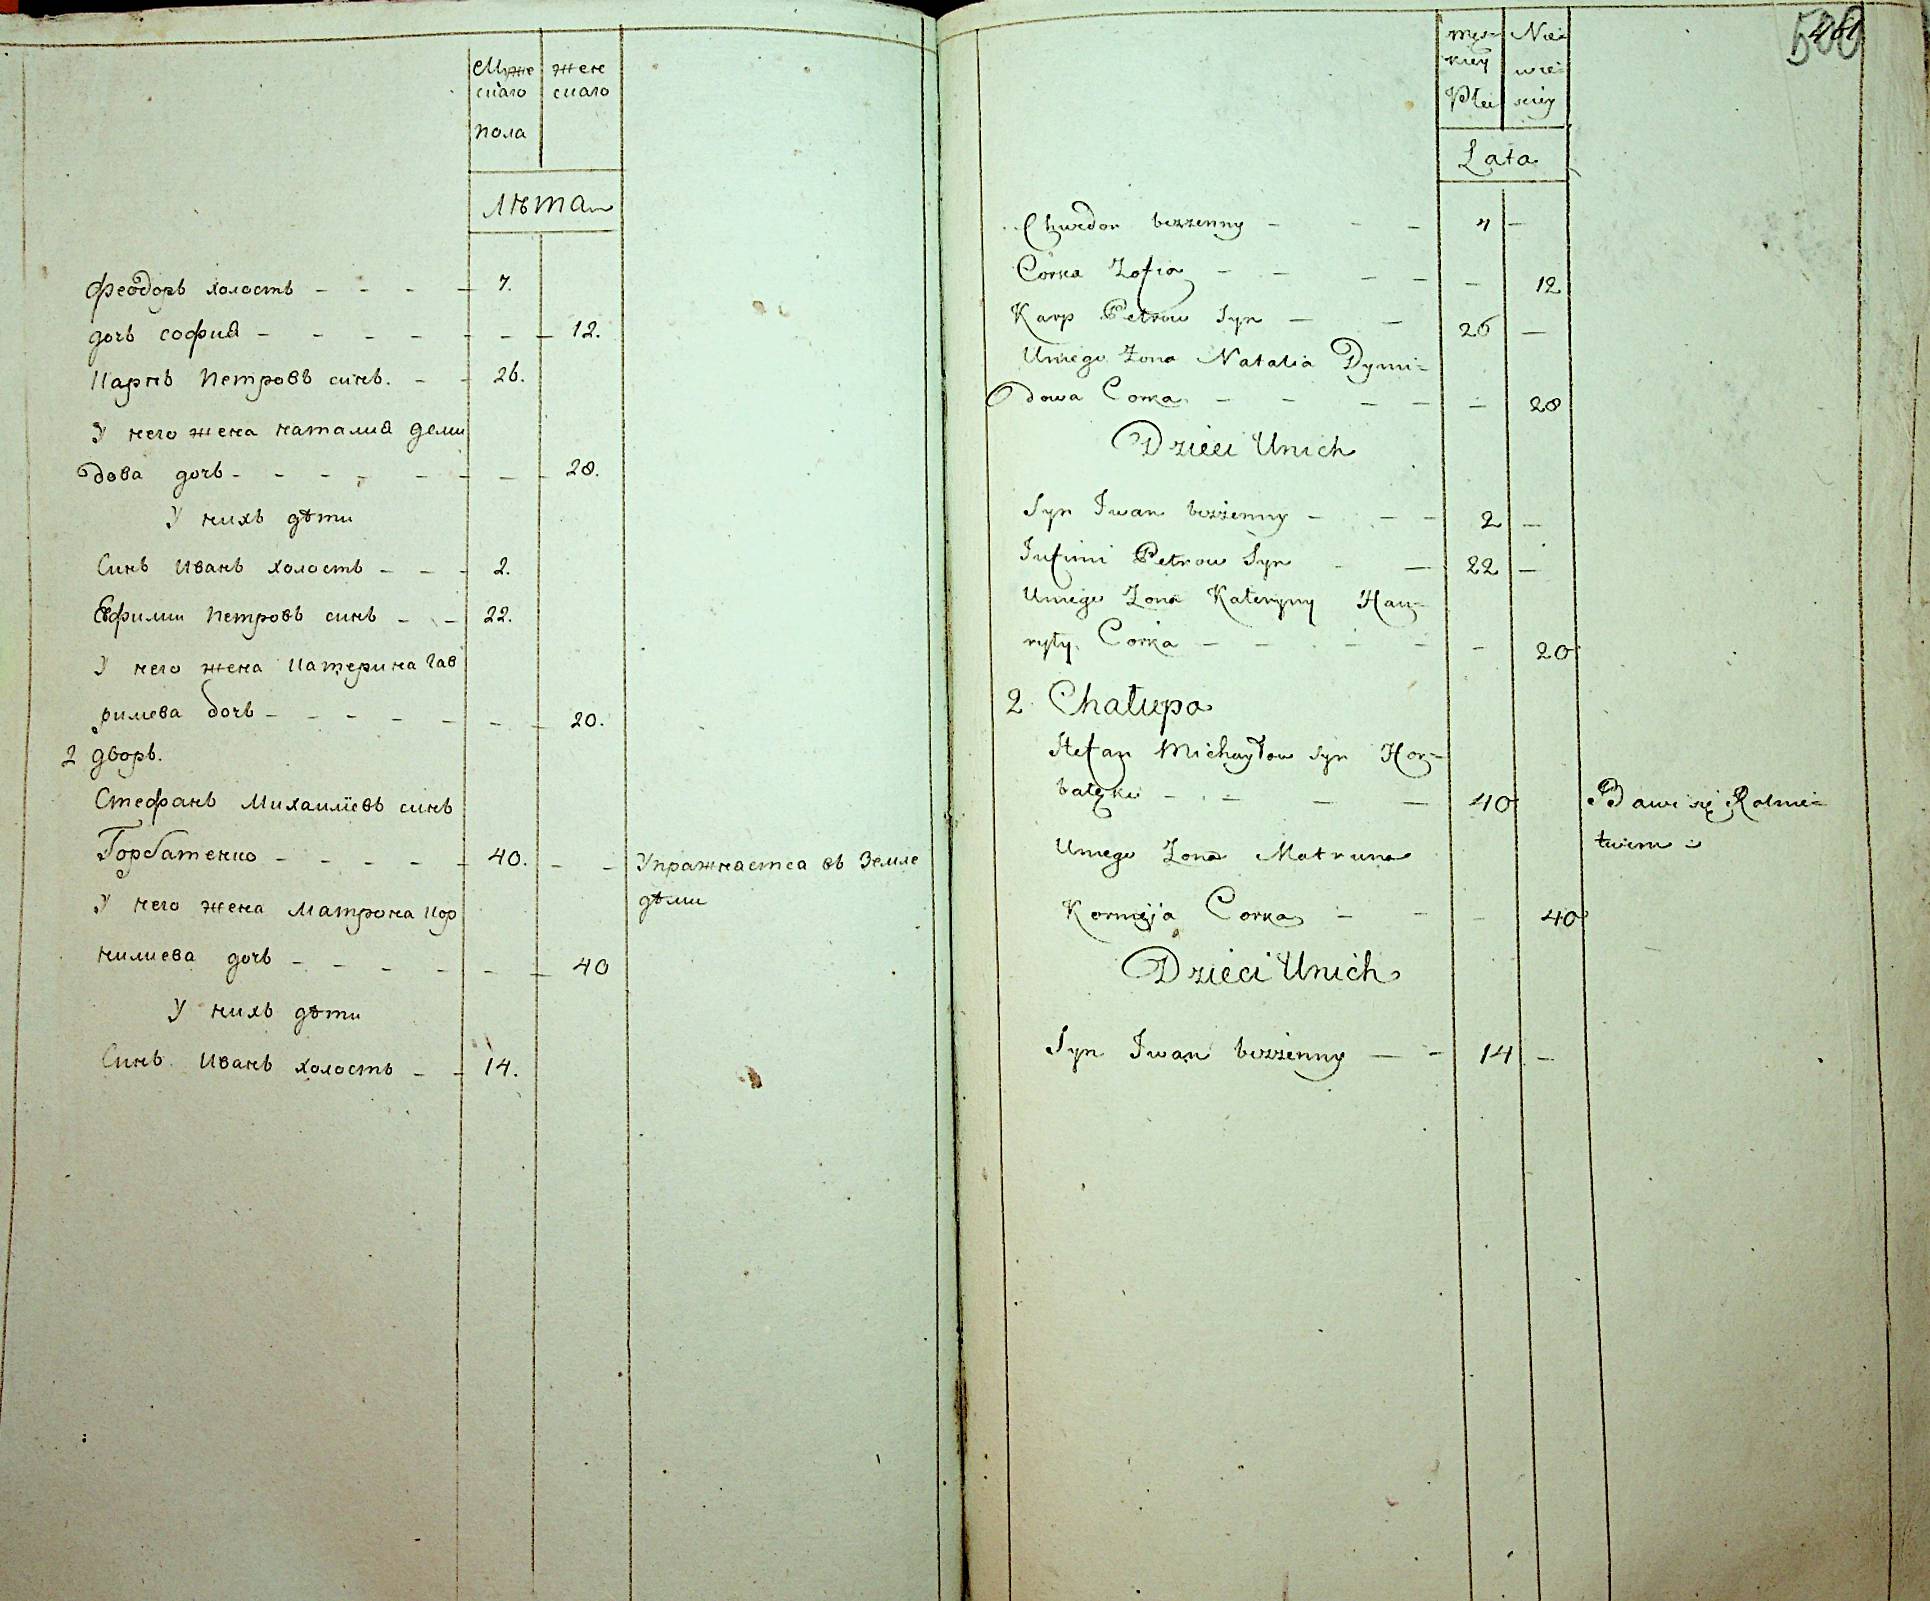 Муже жен
скаго скаго
пола
Лѣта
Феодоръ холостъ - - - - 7.
дочь софиа - - - - - - - 12.
Карпъ Петровъ синъ. - - 26.
У него жена наталиа деми
дова дочь - - - - - - - - 28.
У нихъ дѣти
Синъ Иванъ холостъ - - - 2.
Евфимии Петровъ синъ - - 22.
У него жена Катерина Гав
рилева дочь - - - - - - - 20.
2 дворъ.
Стефанъ Михаилïевъ синъ
Горбатенко - - - - - 40. - - Упражнаетса въ Земле
дѣли
У него жена Матрона Кор
нилиева дочь - - - - - - 40
У нихъ дѣти
Синъ Иванъ холостъ - - 14.
męs- Nie-
kiey wie-
Płci sciey
Lata
Chwedor bezzenny - - - 7 -
Corka Zofia - - - - - 12
Karp Petrow Syn - - 26 -
Uniego Zona Natalia Dymi-
dowa Corka - - - - - 28
Dzieci Unich
Syn Iwan bezżenny - - - 2 -
Jufimi Petrow Syn - - 22 -
Uniego Zona Kateryny Haw-
ryły Corka - - - - - 20
2 Chałupa
Stefan Michayłow syn Hor-
batęko - - - - 40 Bawi się Rolni-
twem
Uniego Zona Matruna
Korneja Corka - - - 40
Dzieci Unich
Syn Iwan bezżenny - - 14 -